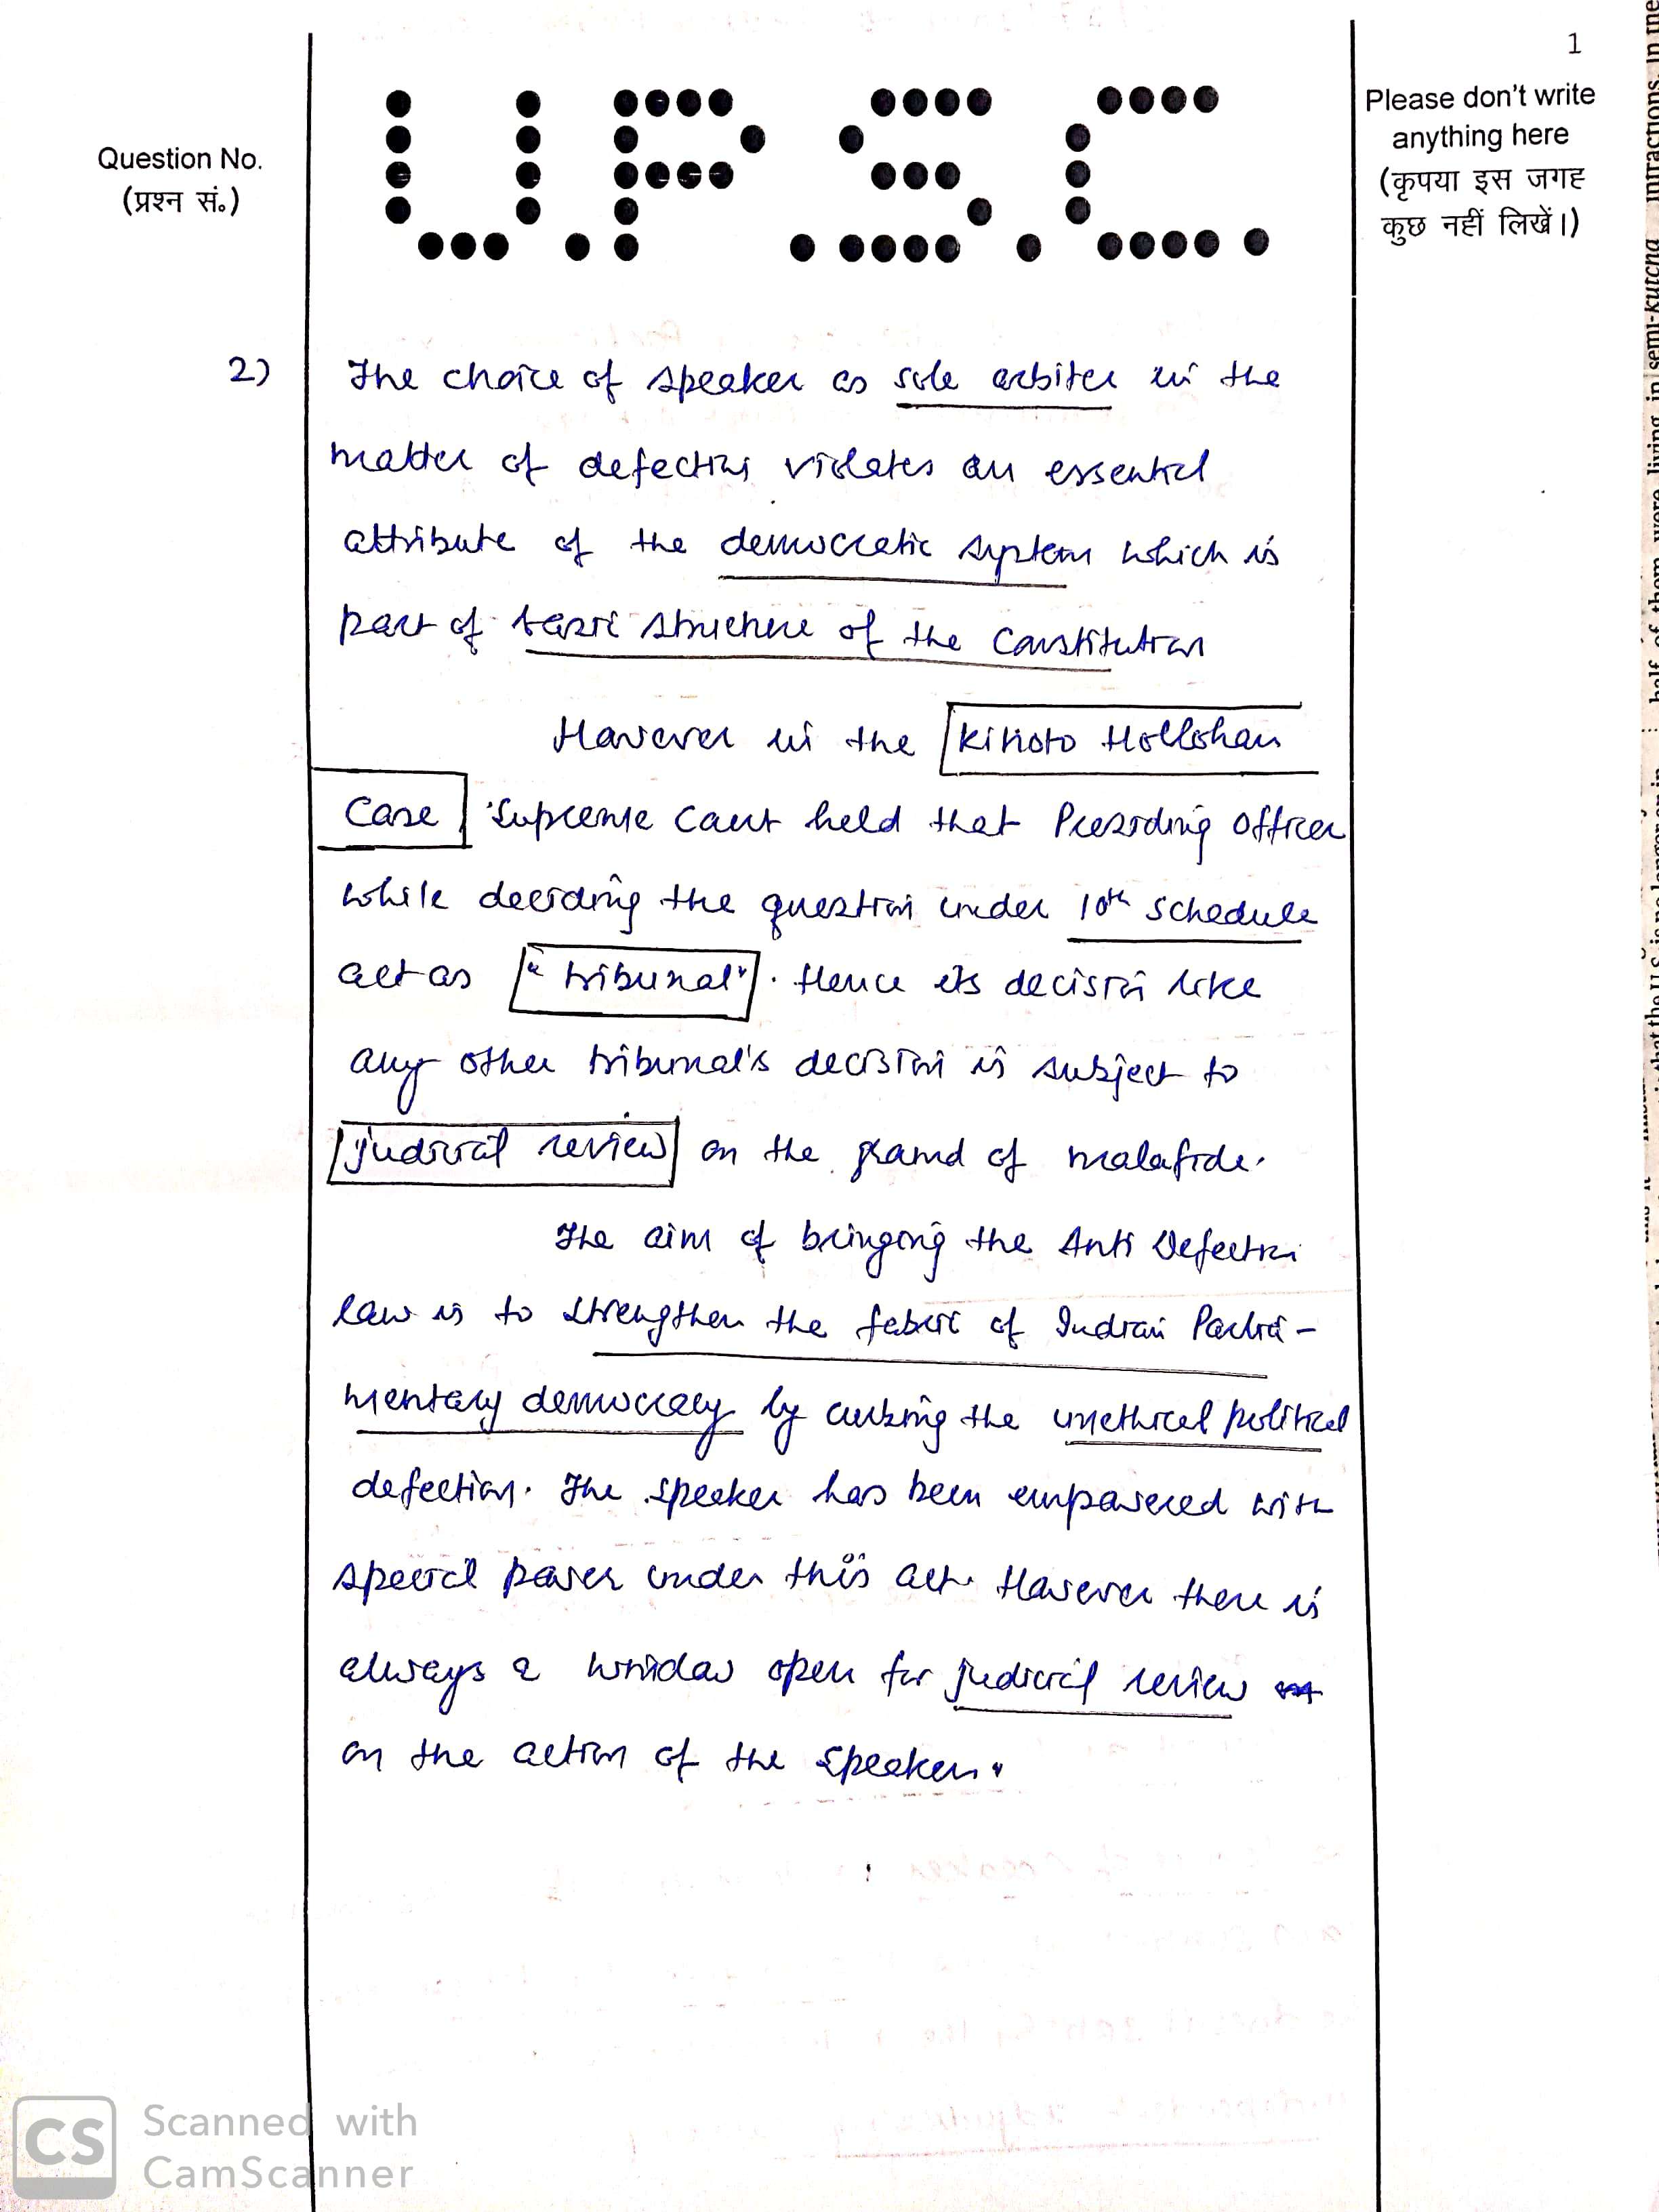 1
Please don't write
anything here
(कृपया इस जगह
कुछ नहीं लिखें।)
Question No.
(प्रश्न सं.)
U.P.S.C.
2)
The choice of speaker as sole arbiter in the
matter of defection violates an essential
attribute of the democratic system which is
part of basic structure of the Constitution
However in the Kihoto Hollohan
Case Supreme Court held that Presiding officer
while deciding the question under 10th schedule
act as "tribunal". Hence its decision like
any other tribunal's decision is subject to
judicial review on the ground of malafide.
The aim of bringing the Anti Defection
law is to strengthen the fabric of Indian Parlia-
mentary democracy by curbing the unethical political
defection. The speaker has been empowered with
special power under this act. However there is
always a window open for judicial review
on the action of the speaker.
CS
Scanned with
CamScanner